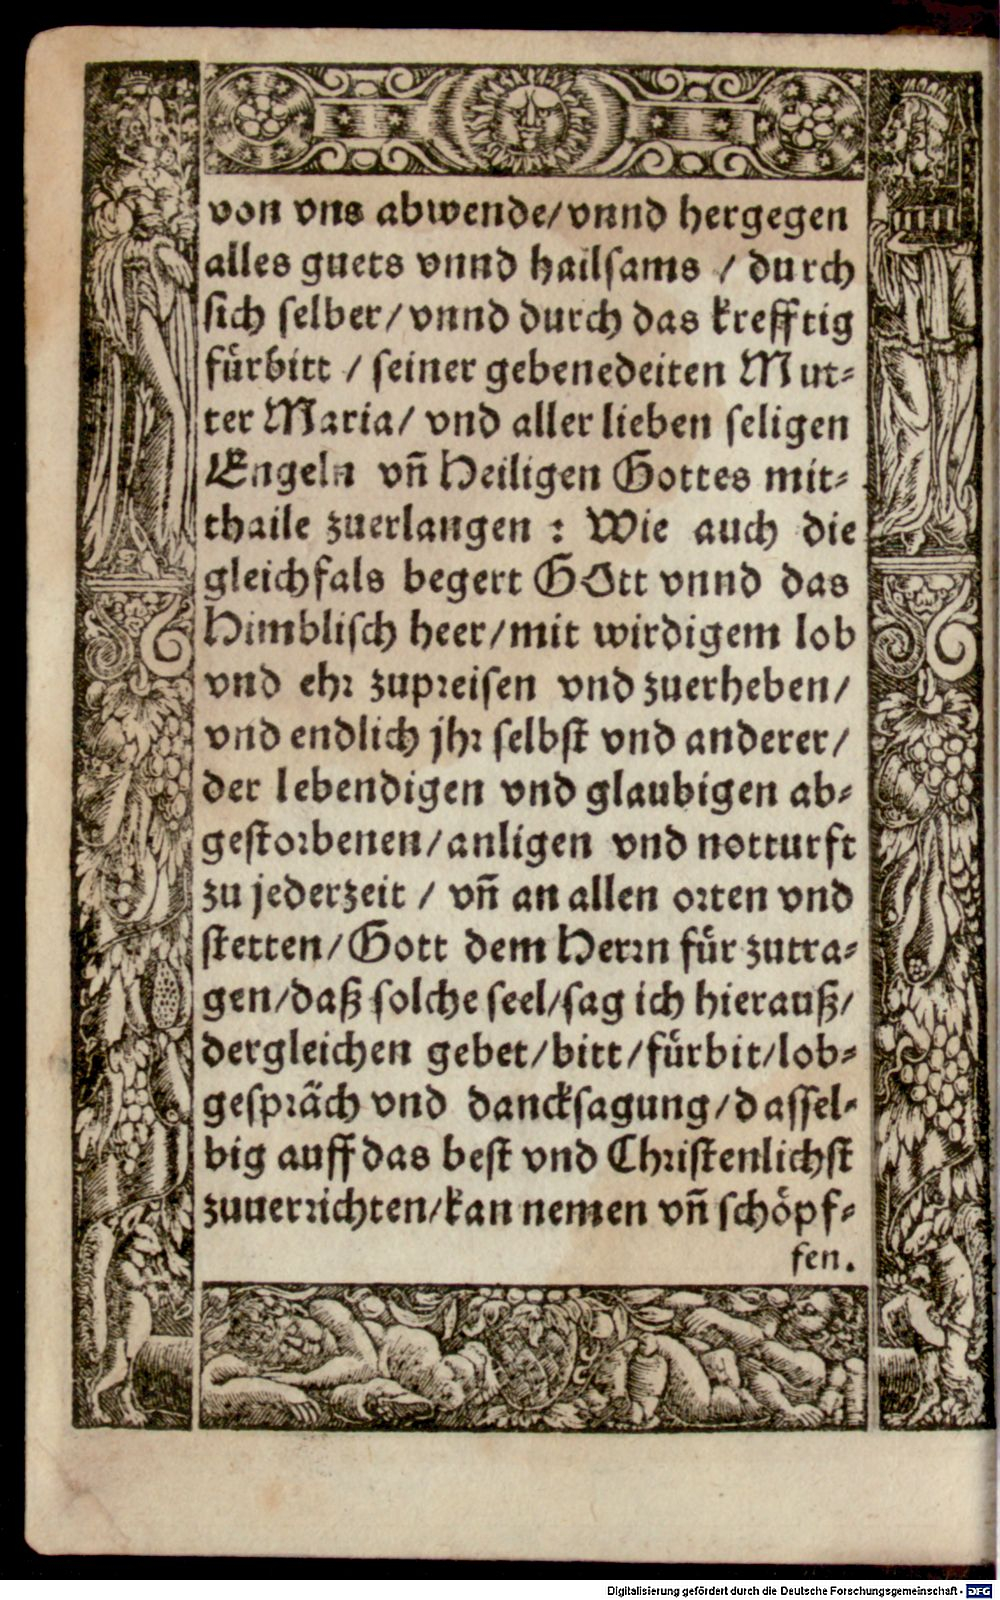 von vns abwende/vnnd hergegen
alles guets vnnd hailsams / durch
sich selber/vnnd durch das krefftig
fürbitt / seiner gebenedeiten Mut⸗
ter Maria/ vnd aller lieben seligen
Engeln vñ Heiligen Gottes mit⸗
thaile zuerlangen : Wie auch die
gleichfals begert GOtt vnnd das
Himblisch heer/mit wirdigem lob
vnd ehr zupreisen vnd zuerheben/
vnd endlich jhr selbst vnd anderer/
der lebendigen vnd glaubigen ab⸗
gestorbenen/anligen vnd notturft
zu jederzeit / vñ an allen orten vnd
stetten/Gott dem Herrn für zutra⸗
gen/daß solche seel/sag ich hierauß/
dergleichen gebet/bitt/fürbit/lob⸗
gespräch vnd dancksagung/dassel⸗
big auff das best vnd Christenlichst
zuuerrichten/kan nemen vñ schöpf⸗
fen.
Digitalisierung gefördert durch die Deutsche Forschungsgemeinschaft - DFG